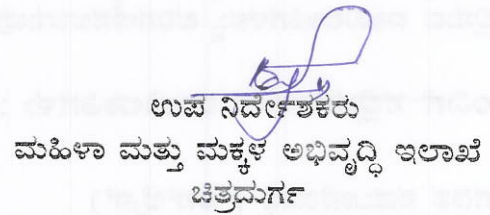 ಉಪ ನಿರ್ದೇಶಕರು
ಮಹಿಳಾ ಮತ್ತು ಮಕ್ಕಳ ಅಭಿವೃದ್ಧಿ ಇಲಾಖೆ
ಚಿತ್ರದುರ್ಗ